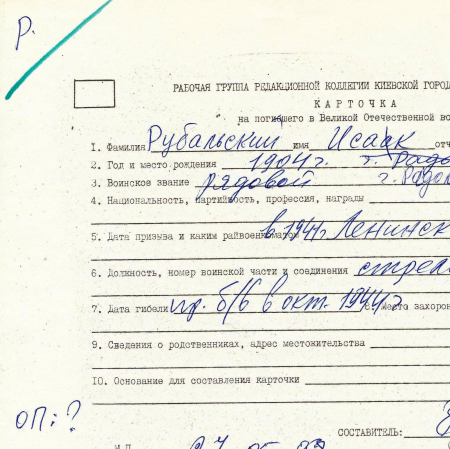 Р.
РАБОЧАЯ ГРУППА РЕДАКЦИОННОЙ КОЛЛЕГИИ КИЕВСКОЙ ГОРОД
КАРТОЧКА
на погибшего в Великой Отечественной во
1. Фамилия Рубальский имя Исаак отч
2. Год и место рождения 1904 г.
3. Воинское звание рядовой г. Радом
4. Национальность, партийность, профессия, награды
5. Дата призыва и каким райвоенкоматом в 1941 г. Ленинск
6. Должность, номер воинской части и соединения стрел
7. Дата гибели пр. б/в в окт. 1944 г 8. Место захорон
9. Сведения о родственниках, адрес местожительства
10. Основание для составления карточки
ОП: ?
СОСТАВИТЕЛЬ:
М.П.